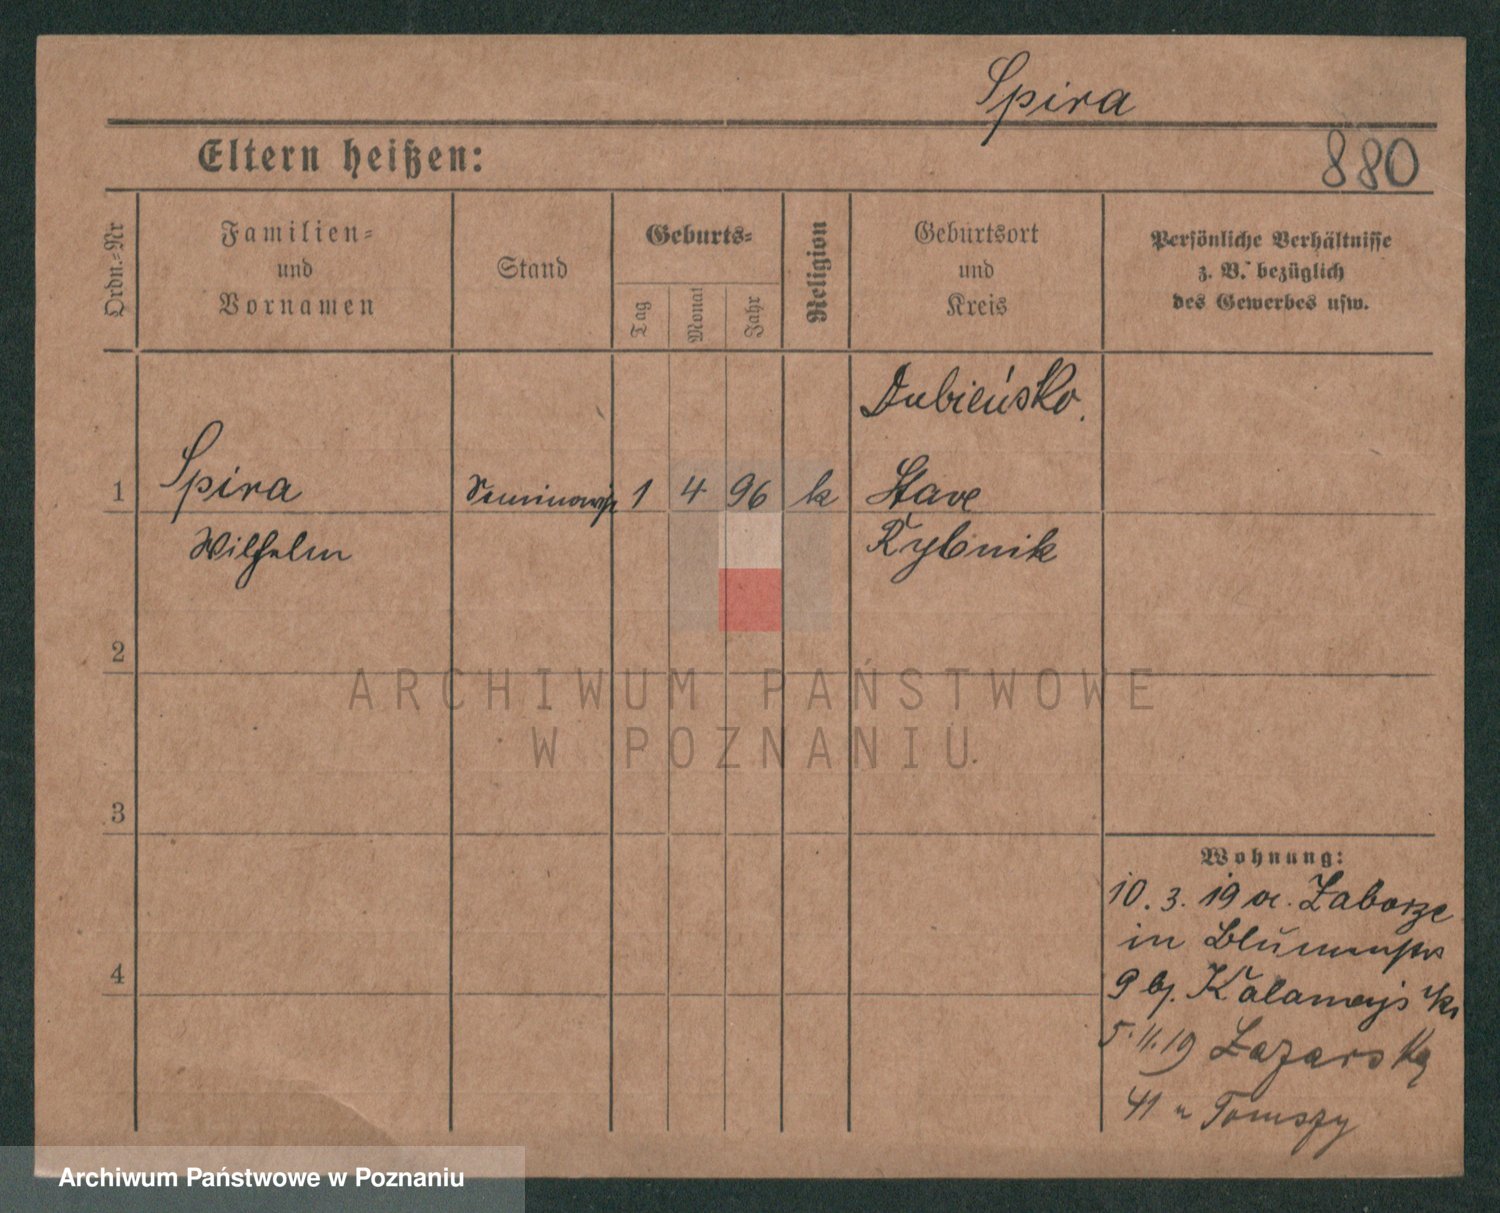 Spira
Eltern heißen:
880
Ordn.=Nr
Familien=
und
Vornamen
Stand
Geburts=
Tag
Monat
Jahr
Religion
Geburtsort
und
Kreis
Persönliche Verhältnisse
z. B. bezüglich
des Gewerbes usw.
Dubieńsko.
1 Spira 1 4 96 k Stare
Wilhelm Rybnik
2
ARCHIWUM PAŃSTWOWE
W POZNANIU
3
Wohnung:
10. 3. 19 Zaborze
in
4
9 bj.
5. 11. 19 Łazarska
41 Tomszy
Archiwum Państwowe w Poznaniu